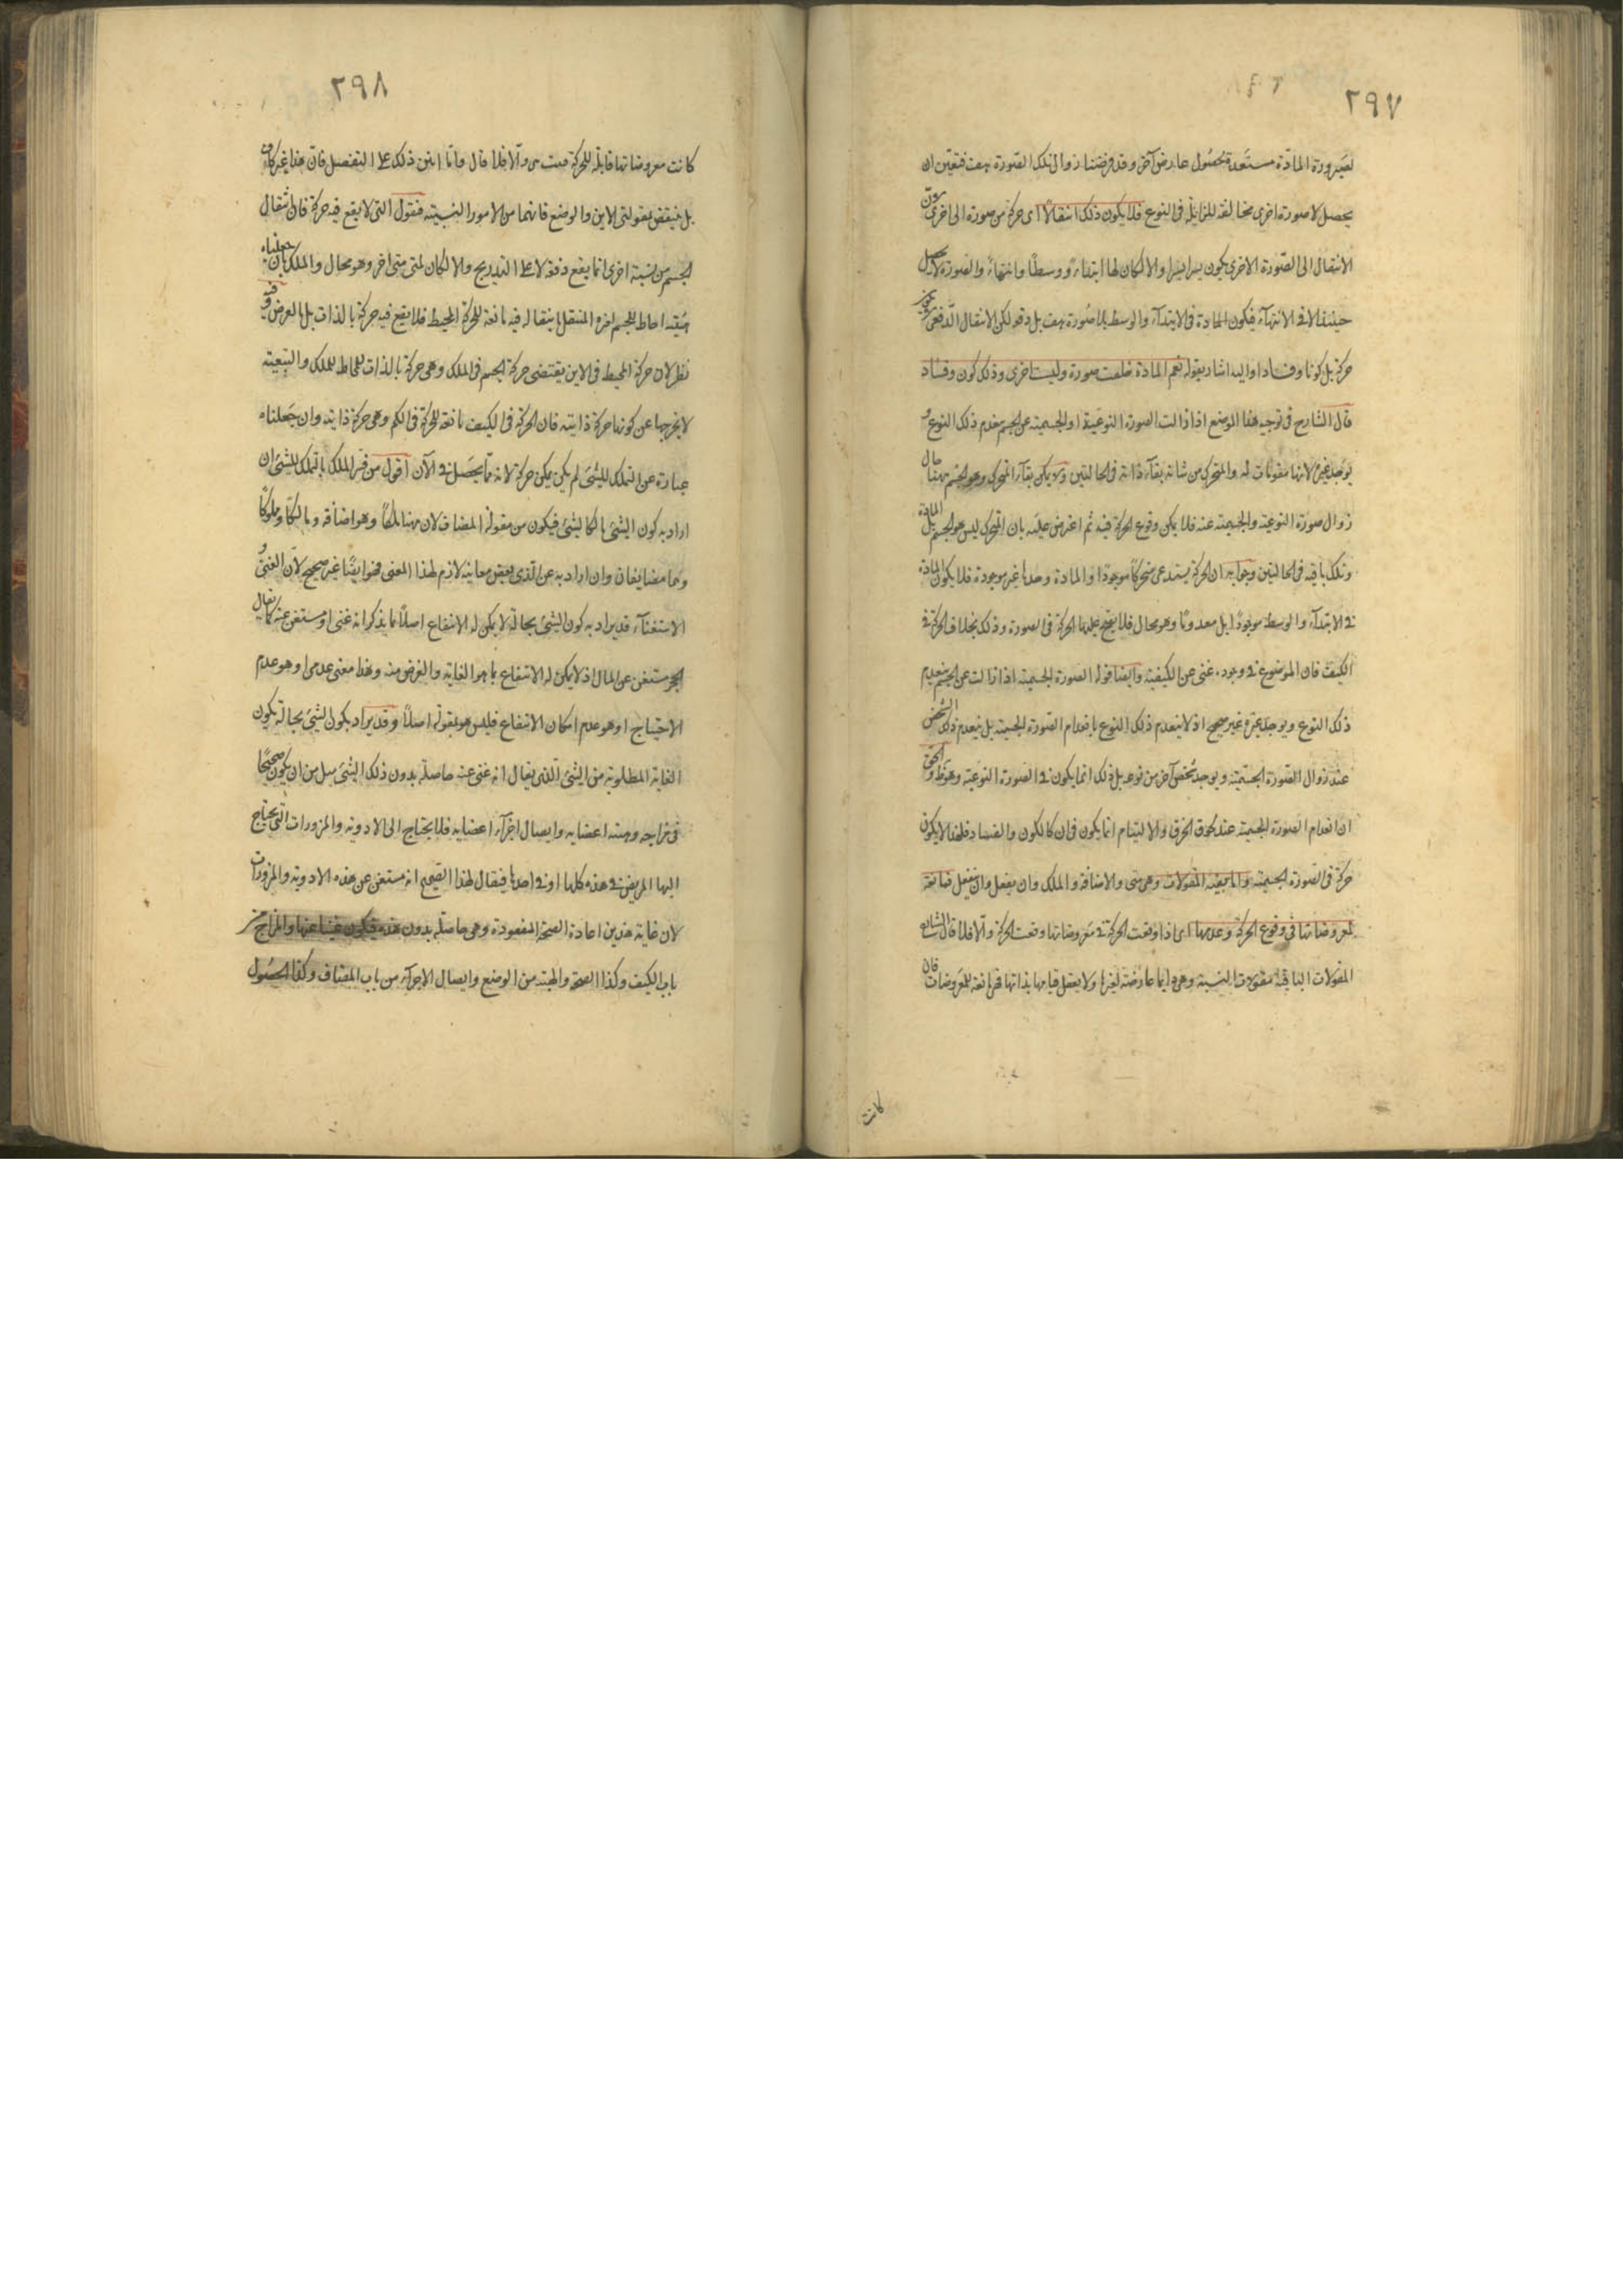 ٢٩٧
لصيرورة المادّة مستعدة لحصول عارض آخر وقد فرضنا زوال تلك الصّورة هف فتعيّن ان
يحصل لا صورة اخرى مخالفة للزايلة فى النوع فلا يكون ذلك انتقالًا اى حركة من صورة الى اخرى
الانتقال الى الصّورة الاخرى يكون يسيرا يسيرا والا لكان لها ابتداءً ووسطًا وانتهاءً والصورة لا تحصل
حينئذ الا فى الانتهآء فيكون المادة فى الابتدآء والوسط بلا صورة هف بل دفعه لكن الانتقال الدّفعى
حركة بل كونا وفسادا واليه اشار بقوله نعم المادّة خلعت صورة ولبست اخرى وذلك كون وفساد
قال الشارح فى توجيه هذا الموضع اذا زالت الصورة النوعيّة او الجسمية عن الجسم ينعدم ذلك النوع و
يوجد غيره لانها مقومات له والمتحرك من شانه بقآء ذاته فى الحالتين ولا يمكن بقآء المتحرك وهو الجسم ههنا حال
زوال صورة النوعية والجسمية عنه فلا يمكن وقوع الحركة فيه ثم اعترض عليه بان المتحرك ليس هو الجسم بل المادة
وتلك باقية فى الحالتين وجوابه ان الحركة يستدعى متحركًا موجودًا والمادة وحدها غير موجودة فلا يكون المادة
فى الابتدآء والوسط موجودًا بل معدومًا وهو محال فلا يصح عليها الحركة فى الصورة وذلك بخلاف الحركة فى
الكيف فان الموضوع فى وجوده غنى عن الكيفية وايضا قوله الصورة الجسمية اذا زالت عن الجسم ينعدم
ذلك النوع ويوجد غيره غير صحيح اذ لا ينعدم ذلك النوع بانعدام الصّورة الجسمية بل ينعدم ذلك الشخص
عند زوال الصّورة الجسميّة ويوجد شخص آخر من نوعه بل ذلك انما يكون فى الصورة النوعية وهو ظ والحق
ان انعدام الصورة الجسمية عند لحوق الخرق والالتيام انما يكون فى ان كالكون والفساد فلهذا لا يكون
حركة فى الصورة الجسمية والما بقية المقولات وهى متى والاضافة والملك وان يفعل وان ينفعل فتابعة
لمعروضاتها فى وقوع الحركة وعدمها اى اذا وقعت الحركة فى معروضاتها وقعت الحركة والّا فلا قال الشارح
المقولات الباقية مفهومات النسبية وهى دايما عارضة لغيرها ولا يعقل قيامها بذاتها فهى تابعة للمعروضات فان
كانت
٢٩٨
كانت معروضاتها قابلة للحركة قبلت هى والّا فلا قال وانا ابيّن ذلك على التفصيل فانّ هذا غير كاف
بل ينتقض بمقولتى الاين والوضع فانهما من الامور النسبيّة فنقول التى لا يقع فيه حركة فان انتقال
الجسم من نسبة اخرى انما يقع دفعة لا على التدريج والا لكان لمتى متى اخر وهو محال والملك ان جعلناه
هيئة احاطة الجسم باخر والمنتقل بانتقاله فيه تابعة للحركة المحيط فلا يقع فيه حركة بالذات بل بالعرض وفيه
نظر لان حركة المحيط فى الاين يقتضى حركة الجسم فى الملك وهى حركة بالذات للمحاط للملك والتبعيّة
لا يخرجها عن كونها حركة ذاتية فان الحركة فى الكيف تابعة للحركة فى الكم وهى حركة ذاتية وان جعلناه
عبارة عن التملك للشئ لم يكن يكن حركة لانه ممّا يحصل فى الآن اقول من فسّر الملك بالتملك للشئ ان
اراد به كون الشئ مالكا لشئ فيكون من مقولة المضاف لان ههنا ملكًا وهو اضافة ومالكًا ومملوكًا
وهما مضايفان وان اراد به عن الّذى بعض معانيه لازم لهذا المعنى فهو ايضًا غير صحيح لانّ الغنى و
الاستغنآء قد يراد به كون الشئ بحالة لا يمكن له الانتفاع اصلًا بما يذكر انه غنى او مستغن عنه كما يقال
الحجر مستغن عن المال اذ لا يمكن له الانتفاع بما هو الغاية والغرض منه وهذا معنى عدمى وهو عدم
الاحتياج او هو عدم امكان الانتفاع فليس هو بمقولة اصلًا وقد يراد بكون الشئ بحالة يكون
الغاية المطلوبة من الشئ الّذى يقال انه غنى عنه حاصلة بدون ذلك الشئ مثل من ان يكون صحيحًا
فى مزاجه وهيئة اعضايه وايصال اجزآء اعضايه فلا يحتاج الى الادوية والمزورات التى يحتاج
اليها المريض فى هذه كلها او فى احدها فيقال لهذا الصحيح انه مستغن عن هذه الادوية والمزورات
لان غاية هذين اعادة الصحة المفقودة وهى حاصلة بدون هذه فيكون غنيّا عنها والمزاج من
باب الكيف وكذا الصحة والهيئة من الوضع وايصال الاجزآء من باب المضاف وكذا الحصول